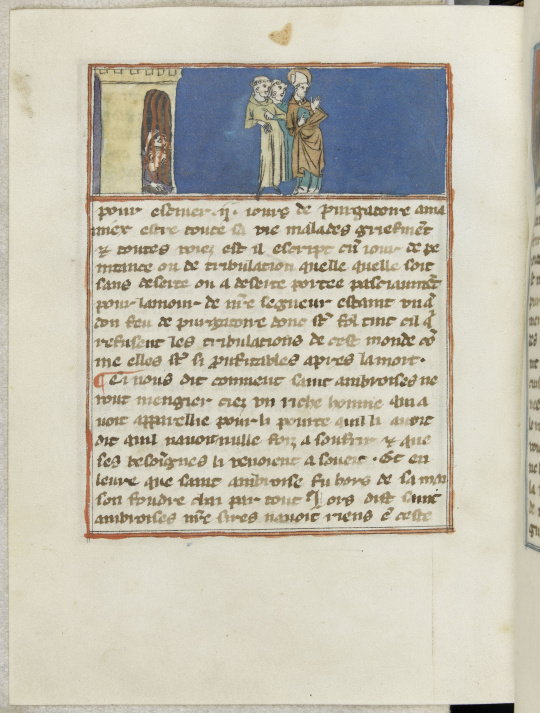 pour eschiver .ii. iours de purgatoire ama
miex estre toute sa vie malades griefmẽt
⁊ toutes voiez est il escript cũ iour de pe
nitance ou de tribulation quelle quelle soit
sans deserte ou a deserte portee pasciaumẽt
pour lamour de nr̃e segneur estaint
don feu de purgatoire donc st̃ fol tuit cil q̃
refusent les tribulations de cest monde co
me elles st̃ si pufitables apres la mort .
Ci nous dit comment saint ambroises ne
vout mengier ciez vn riche homme qui a
voit apparellie pour li pource quil li avoit
dit quil navoit nulle foiz a souffrir ⁊ que
ses besoignes li venoient a soueit . Et en
leure que saint ambroise fu hors de sa mai
son foudre chai par tout Lors dist saint
ambroises nr̃e sires navoit riens ẽ ceste